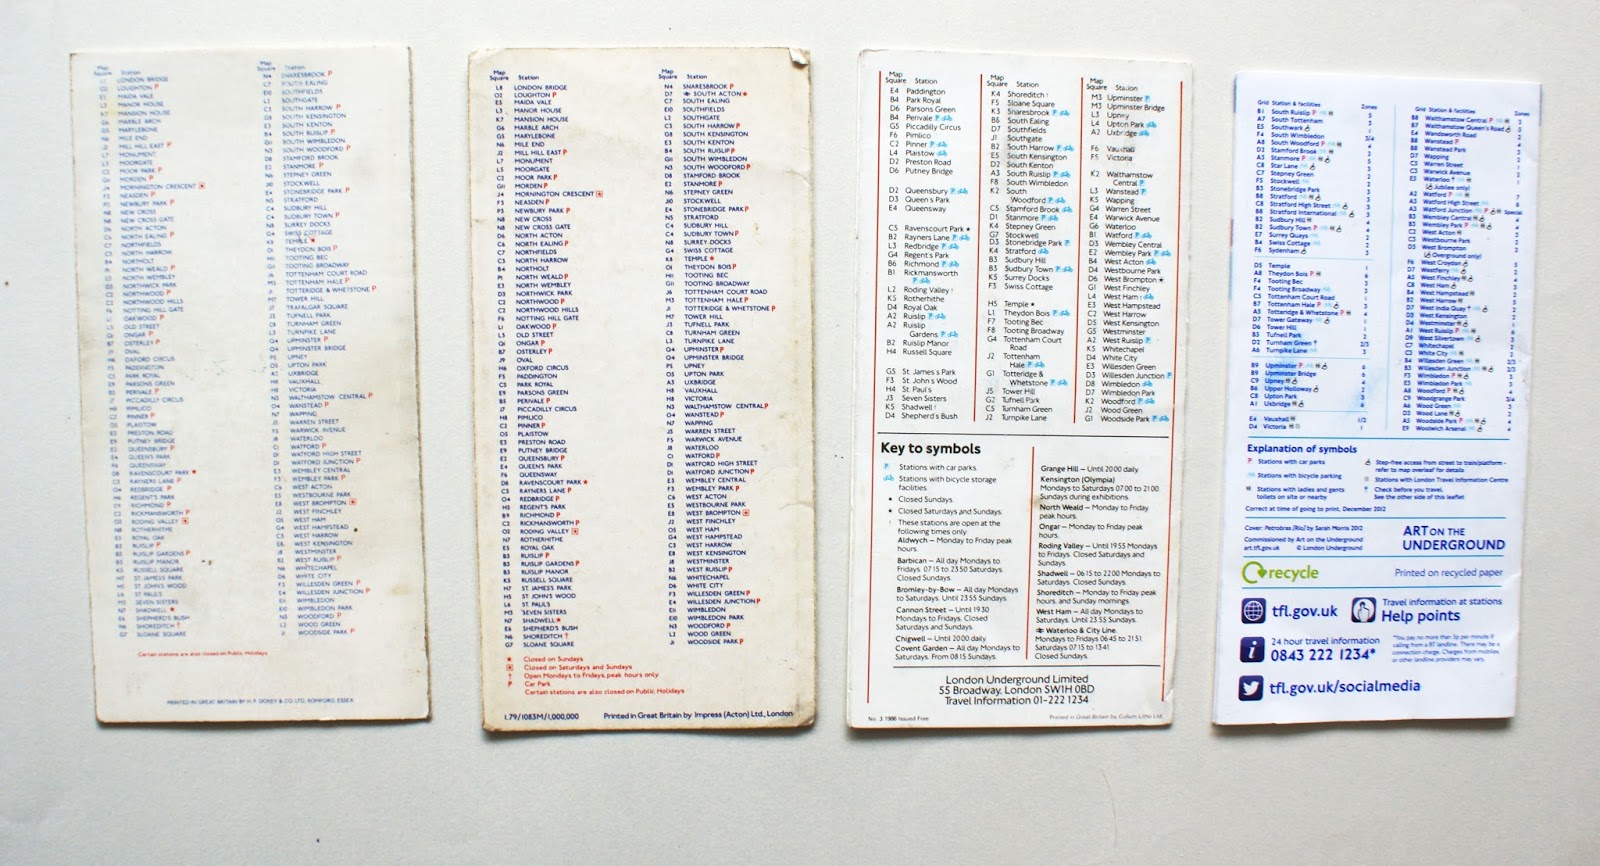 Map
Square Station
LONDON BRIDGE
O2 LOUGHTON P
E5 MAIDA VALE
L3 MANOR HOUSE
K7 MANSION HOUSE
G6 MARBLE ARCH
G5 MARYLEBONE
N6 MILE END
J2 MILL HILL EAST P
L7 MONUMENT
L5 MOORGATE
C2 MOOR PARK P
G11 MORDEN P
J4 MORNINGTON CRESCENT
F3 NEASDEN P
P3 NEWBURY PARK P
N8 NEW CROSS
N8 NEW CROSS GATE
D6 NORTH ACTON
C6 NORTH EALING P
C7 NORTHFIELDS
C3 NORTH HARROW
B4 NORTHOLT
NORTH WEALD P
E3 NORTH WEMBLEY
D3 NORTHWICK PARK
C2 NORTHWOOD P
C2 NORTHWOOD HILLS
F6 NOTTING HILL GATE
OAKWOOD P
L5 OLD STREET
ONGAR P
B7 OSTERLEY P
OVAL
H6 OXFORD CIRCUS
F5 PADDINGTON
C5 PARK ROYAL
E9 PARSONS GREEN
B5 PERIVALE P
J7 PICCADILLY CIRCUS
H8 PIMLICO
C2 PINNER P
O5 PLAISTOW
E3 PRESTON ROAD
E9 PUTNEY BRIDGE
E2 QUEENSBURY P
E4 QUEEN'S PARK
F6 QUEENSWAY
D8 RAVENSCOURT PARK ★
C3 RAYNERS LANE P
O4 REDBRIDGE P
H5 REGENT'S PARK
RICHMOND P
C2 RICKMANSWORTH P
O2 RODING VALLEY
ROTHERHITHE
E5 ROYAL OAK
B3 RUISLIP P
B3 RUISLIP GARDENS P
B3 RUISLIP MANOR
K5 RUSSELL SQUARE
H7 ST. JAMES'S PARK
H5 ST. JOHN'S WOOD
L6 ST. PAUL'S
M3 SEVEN SISTERS
N7 SHADWELL ★
E6 SHEPHERD'S BUSH
N6 SHOREDITCH †
G7 SLOANE SQUARE
Map
Square Station
N4 SNARESBROOK P
C7 SOUTH EALING
E10 SOUTHFIELDS
L2 SOUTHGATE
C3 SOUTH HARROW P
G8 SOUTH KENSINGTON
E3 SOUTH KENTON
B4 SOUTH RUISLIP P
G11 SOUTH WIMBLEDON
N3 SOUTH WOODFORD P
D8 STAMFORD BROOK
E2 STANMORE P
N6 STEPNEY GREEN
J10 STOCKWELL
E4 STONEBRIDGE PARK P
N5 STRATFORD
C4 SUDBURY HILL
C4 SUDBURY TOWN P
N8 SURREY DOCKS
G4 SWISS COTTAGE
K8 TEMPLE ★
O1 THEYDON BOIS P
TOOTING BEC
G11 TOOTING BROADWAY
J6 TOTTENHAM COURT ROAD
M3 TOTTENHAM HALE P
J1 TOTTERIDGE & WHETSTONE P
M7 TOWER HILL
J7 TRAFALGAR SQUARE
J3 TUFNELL PARK
C8 TURNHAM GREEN
L3 TURNPIKE LANE
Q4 UPMINSTER P
Q4 UPMINSTER BRIDGE
P5 UPNEY
O5 UPTON PARK
A3 UXBRIDGE
H8 VAUXHALL
H8 VICTORIA
N3 WALTHAMSTOW CENTRAL P
O4 WANSTEAD P
N7 WAPPING
J5 WARREN STREET
F5 WARWICK AVENUE
J8 WATERLOO
C1 WATFORD P
D1 WATFORD HIGH STREET
D1 WATFORD JUNCTION P
E3 WEMBLEY CENTRAL
F3 WEMBLEY PARK P
C6 WEST ACTON
E5 WESTBOURNE PARK
E8 WEST BROMPTON
J2 WEST FINCHLEY
O5 WEST HAM
G4 WEST HAMPSTEAD
C3 WEST HARROW
E8 WEST KENSINGTON
J8 WESTMINSTER
B2 WEST RUISLIP P
N6 WHITECHAPEL
D6 WHITE CITY
F3 WILLESDEN GREEN P
E4 WILLESDEN JUNCTION P
E11 WIMBLEDON
E10 WIMBLEDON PARK
N3 WOODFORD P
L2 WOOD GREEN
J1 WOODSIDE PARK P
Certain stations are also closed on Public Holidays
PRINTED IN GREAT BRITAIN BY ROMFORD, ESSEX
Map
Square Station
L8 LONDON BRIDGE
O2 LOUGHTON P
E5 MAIDA VALE
L3 MANOR HOUSE
K7 MANSION HOUSE
G6 MARBLE ARCH
G5 MARYLEBONE
N6 MILE END
J2 MILL HILL EAST P
L7 MONUMENT
L5 MOORGATE
C2 MOOR PARK P
G11 MORDEN P
J4 MORNINGTON CRESCENT
F3 NEASDEN P
P3 NEWBURY PARK P
N8 NEW CROSS
N8 NEW CROSS GATE
D6 NORTH ACTON
C6 NORTH EALING P
C7 NORTHFIELDS
C3 NORTH HARROW
B4 NORTHOLT
P1 NORTH WEALD P
E3 NORTH WEMBLEY
D3 NORTHWICK PARK
C2 NORTHWOOD P
C2 NORTHWOOD HILLS
F6 NOTTING HILL GATE
L1 OAKWOOD P
L5 OLD STREET
Q1 ONGAR P
B7 OSTERLEY P
J9 OVAL
H6 OXFORD CIRCUS
F5 PADDINGTON
C5 PARK ROYAL
E9 PARSONS GREEN
B5 PERIVALE P
J7 PICCADILLY CIRCUS
H8 PIMLICO
C2 PINNER P
O5 PLAISTOW
E3 PRESTON ROAD
E9 PUTNEY BRIDGE
E2 QUEENSBURY P
E4 QUEEN'S PARK
F6 QUEENSWAY
D8 RAVENSCOURT PARK ★
C3 RAYNERS LANE P
O4 REDBRIDGE P
H5 REGENT'S PARK
B9 RICHMOND P
C2 RICKMANSWORTH P
O2 RODING VALLEY
N7 ROTHERHITHE
E5 ROYAL OAK
B3 RUISLIP P
B3 RUISLIP GARDENS P
B3 RUISLIP MANOR
K5 RUSSELL SQUARE
H7 ST. JAMES'S PARK
H5 ST. JOHN'S WOOD
L6 ST. PAUL'S
M3 SEVEN SISTERS
N7 SHADWELL ★
E6 SHEPHERD'S BUSH
N6 SHOREDITCH †
G7 SLOANE SQUARE
Map
Square Station
N4 SNARESBROOK P
D7 SOUTH ACTON ★
C7 SOUTH EALING
E10 SOUTHFIELDS
L2 SOUTHGATE
C3 SOUTH HARROW P
G8 SOUTH KENSINGTON
E3 SOUTH KENTON
B4 SOUTH RUISLIP P
G11 SOUTH WIMBLEDON
N3 SOUTH WOODFORD P
D8 STAMFORD BROOK
E2 STANMORE P
N6 STEPNEY GREEN
J10 STOCKWELL
E4 STONEBRIDGE PARK P
N5 STRATFORD
C4 SUDBURY HILL
C4 SUDBURY TOWN P
N8 SURREY DOCKS
G4 SWISS COTTAGE
K8 TEMPLE ★
O1 THEYDON BOIS P
H11 TOOTING BEC
G11 TOOTING BROADWAY
J6 TOTTENHAM COURT ROAD
M3 TOTTENHAM HALE P
J1 TOTTERIDGE & WHETSTONE P
M7 TOWER HILL
J3 TUFNELL PARK
C8 TURNHAM GREEN
L3 TURNPIKE LANE
Q4 UPMINSTER P
Q4 UPMINSTER BRIDGE
P5 UPNEY
O5 UPTON PARK
A3 UXBRIDGE
H8 VAUXHALL
H8 VICTORIA
N3 WALTHAMSTOW CENTRAL P
O4 WANSTEAD P
N7 WAPPING
J5 WARREN STREET
F5 WARWICK AVENUE
J8 WATERLOO
C1 WATFORD P
D1 WATFORD HIGH STREET
D1 WATFORD JUNCTION P
E3 WEMBLEY CENTRAL
F3 WEMBLEY PARK P
C6 WEST ACTON
E5 WESTBOURNE PARK
E8 WEST BROMPTON
J2 WEST FINCHLEY
O5 WEST HAM
G4 WEST HAMPSTEAD
C3 WEST HARROW
E8 WEST KENSINGTON
J8 WESTMINSTER
B2 WEST RUISLIP P
N6 WHITECHAPEL
D6 WHITE CITY
F3 WILLESDEN GREEN P
E4 WILLESDEN JUNCTION P
E11 WIMBLEDON
E10 WIMBLEDON PARK
N3 WOODFORD P
L2 WOOD GREEN
J1 WOODSIDE PARK P
★ Closed on Sundays
Closed on Saturdays and Sundays
† Open Mondays to Fridays, peak hours only
P Car Park
Certain stations are also closed on Public Holidays
1.79/1083M/1,000,000 Printed in Great Britain by Impress (Acton) Ltd., London
Map
Square Station
E4 Paddington
B4 Park Royal
D6 Parsons Green
B4 Perivale P
G5 Piccadilly Circus
F6 Pimlico
C2 Pinner P
L4 Plaistow
D2 Preston Road
D6 Putney Bridge
D2 Queensbury P
D3 Queen's Park
E4 Queensway
C5 Ravenscourt Park ★
B2 Rayners Lane P
L3 Redbridge P
G4 Regent's Park
B6 Richmond P
B1 Rickmansworth
P
L2 Roding Valley †
K5 Rotherhithe
D4 Royal Oak
A2 Ruislip P
A2 Ruislip
Gardens P
B2 Ruislip Manor
H4 Russell Square
G5 St. James's Park
F3 St. John's Wood
H4 St. Paul's
J3 Seven Sisters
K5 Shadwell †
D4 Shepherd's Bush
Map
Square Station
K4 Shoreditch †
F5 Sloane Square
K3 Snaresbrook P
B6 South Ealing
D7 Southfields
J1 Southgate
B2 South Harrow P
E5 South Kensington
D2 South Kenton
A3 South Ruislip P
F8 South Wimbledon
K2 South
Woodford P
C5 Stamford Brook
D1 Stanmore P
K4 Stepney Green
G7 Stockwell
D3 Stonebridge Park P
K4 Stratford
B3 Sudbury Hill
B3 Sudbury Town P
K5 Surrey Docks
F3 Swiss Cottage
H5 Temple ★
L1 Theydon Bois P
F7 Tooting Bec
F8 Tooting Broadway
G4 Tottenham Court
Road
J2 Tottenham
Hale P
G1 Totteridge &
Whetstone P
J5 Tower Hill
G2 Tufnell Park
C5 Turnham Green
J2 Turnpike Lane
Map
Square Station
M3 Upminster P
M3 Upminster Bridge
L3 Upney
L4 Upton Park
A2 Uxbridge
F6 Vauxhall
F5 Victoria
K2 Walthamstow
Central P
L3 Wanstead P
K5 Wapping
G4 Warren Street
E4 Warwick Avenue
G6 Waterloo
B1 Watford P
D3 Wembley Central
E2 Wembley Park P
B4 West Acton
D4 Westbourne Park
D6 West Brompton ★
G1 West Finchley
L4 West Ham †
E3 West Hampstead
C2 West Harrow
D5 West Kensington
G5 Westminster
A2 West Ruislip P
K5 Whitechapel
D4 White City
E3 Willesden Green
D3 Willesden Junction P
D8 Wimbledon
D7 Wimbledon Park
K2 Woodford P
J2 Wood Green
G1 Woodside Park P
Key to symbols
P Stations with car parks
Stations with bicycle storage
facilities.
★ Closed Sundays.
★ Closed Saturdays and Sundays.
† These stations are open at the
following times only:
Aldwych – Monday to Friday peak
hours.
Barbican – All day Mondays to
Fridays. 0715 to 2350 Saturdays.
Closed Sundays.
Bromley-by-Bow – All day Mondays
to Saturdays. Until 2355 Sundays.
Cannon Street – Until 1930
Monday to Fridays. Closed
Saturdays and Sundays.
Chigwell – Until 2000 daily.
Covent Garden – All day Monday to
Saturdays. From 0815 Sundays.
Grange Hill – Until 2000 daily
Kensington (Olympia)
Mondays to Saturdays 0700 to 2100.
Sundays during exhibitions.
North Weald – Monday to Friday
peak hours.
Ongar – Monday to Friday peak
hours.
Roding Valley – Until 1955 Mondays
to Fridays. Closed Saturdays and
Sundays.
Shadwell – 0615 to 2200 Mondays to
Saturdays. Closed Sundays.
Shoreditch – Monday to Friday peak
hours. and Sunday mornings
West Ham – All day Mondays to
Saturdays. Until 2355 Sundays.
Waterloo & City Line.
Mondays to Fridays 0645 to 2151.
Saturdays 0715 to 1341
Closed Sundays.
London Underground Limited
55 Broadway, London SW1H 0BD
Travel Information 01-222 1234
No. 3 1986 Issued Free Printed in Great Britain by Cullum Litho Ltd.
Grid Station & facilities Zones
B1 South Ruislip P 5
A7 South Tottenham 3
E5 Southwark 1
F4 South Wimbledon 3/4
A8 South Woodford P 4
D2 Stamford Brook 2
A3 Stanmore P 5
C8 Star Lane
C7 Stepney Green
F5 Stockwell 2
B3 Stonebridge Park 3
B8 Stratford 3
C8 Stratford High Street 3
B8 Stratford International 3
B2 Sudbury Hill 4
B2 Sudbury Town P 4
E7 Surrey Quays 2
B4 Swiss Cottage 2
F6 Sydenham 3
D5 Temple 1
A8 Theydon Bois P 6
F4 Tooting Bec 3
F4 Tooting Broadway 3
C5 Tottenham Court Road 1
B7 Tottenham Hale P 3
A5 Totteridge & Whetstone P 4
D7 Tower Gateway 1
D6 Tower Hill 1
B5 Tufnell Park 2
D2 Turnham Green † 2/3
A6 Turnpike Lane 3
B9 Upminster P 6
B9 Upminster Bridge 6
C9 Upney 4
B6 Upper Holloway 2
C8 Upton Park 3
A1 Uxbridge 6
E4 Vauxhall 1/2
D4 Victoria 1
Grid Station & facilities Zones
B8 Walthamstow Central P 3
B7 Walthamstow Queen's Road 3
E4 Wandsworth Road 2
B8 Wanstead P 4
B8 Wanstead Park 3
D7 Wapping 2
C5 Warren Street 1
C3 Warwick Avenue 2
E5 Waterloo † 1
(Jubilee only)
A2 Watford P 7
A3 Watford High Street 8
A3 Watford Junction P Special
B3 Wembley Central 4
B3 Wembley Park P 4
C2 West Acton 3
C3 Westbourne Park 2
D3 West Brompton 2
(Overground only)
F6 West Croydon 5
D7 Westferry 2
A5 West Finchley 4
C8 West Ham 3
B4 West Hampstead 2
B2 West Harrow 5
D7 West India Quay † 2
D3 West Kensington 2
D4 Westminster 1
A1 West Ruislip P 6
D9 West Silvertown 3
C7 Whitechapel 2
C3 White City 2
B4 Willesden Green 2/3
B3 Willesden Junction 2/3
F3 Wimbledon P 3
E3 Wimbledon Park 3
A8 Woodford P 4
C9 Woodgrange Park 3/4
A6 Wood Green 3
B3 Wood Lane 2
A5 Woodside Park P 4
E9 Woolwich Arsenal 4
Explanation of symbols
P Stations with car parks
Stations with bicycle parking
Stations with ladies and gents
toilets on site or nearby
Step-free access from street to train/platform -
refer to map overleaf for details
Stations with London Travel Information Centre
† Check before you travel.
See the other side of this leaflet
Correct at time of going to print, December 2012
Cover: Petrobras (Rio) by Sarah Morris 2012
Commissioned by Art on the Underground
art.tfl.gov.uk © London Underground
ART ON THE
UNDERGROUND
recycle
Printed on recycled paper
tfl.gov.uk
Travel information at stations
Help points
24 hour travel information
0843 222 1234*
*You pay no more than 5p per minute if
calling from a BT landline. There may be a
connection charge. Charges from mobiles
or other landline providers may vary.
tfl.gov.uk/socialmedia